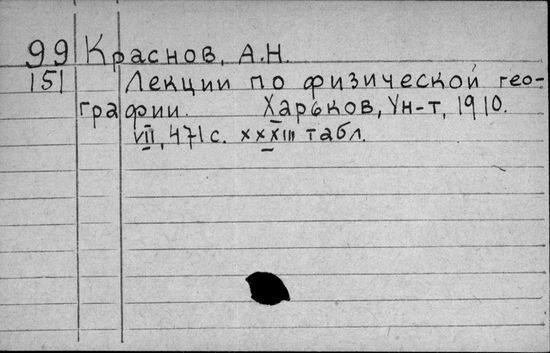 99 Краснов, А.Н.
151 Лекции по физической гео-
графии. Харьков, Ун-т, 1910.
VII, 471 с. XXXIII табл.